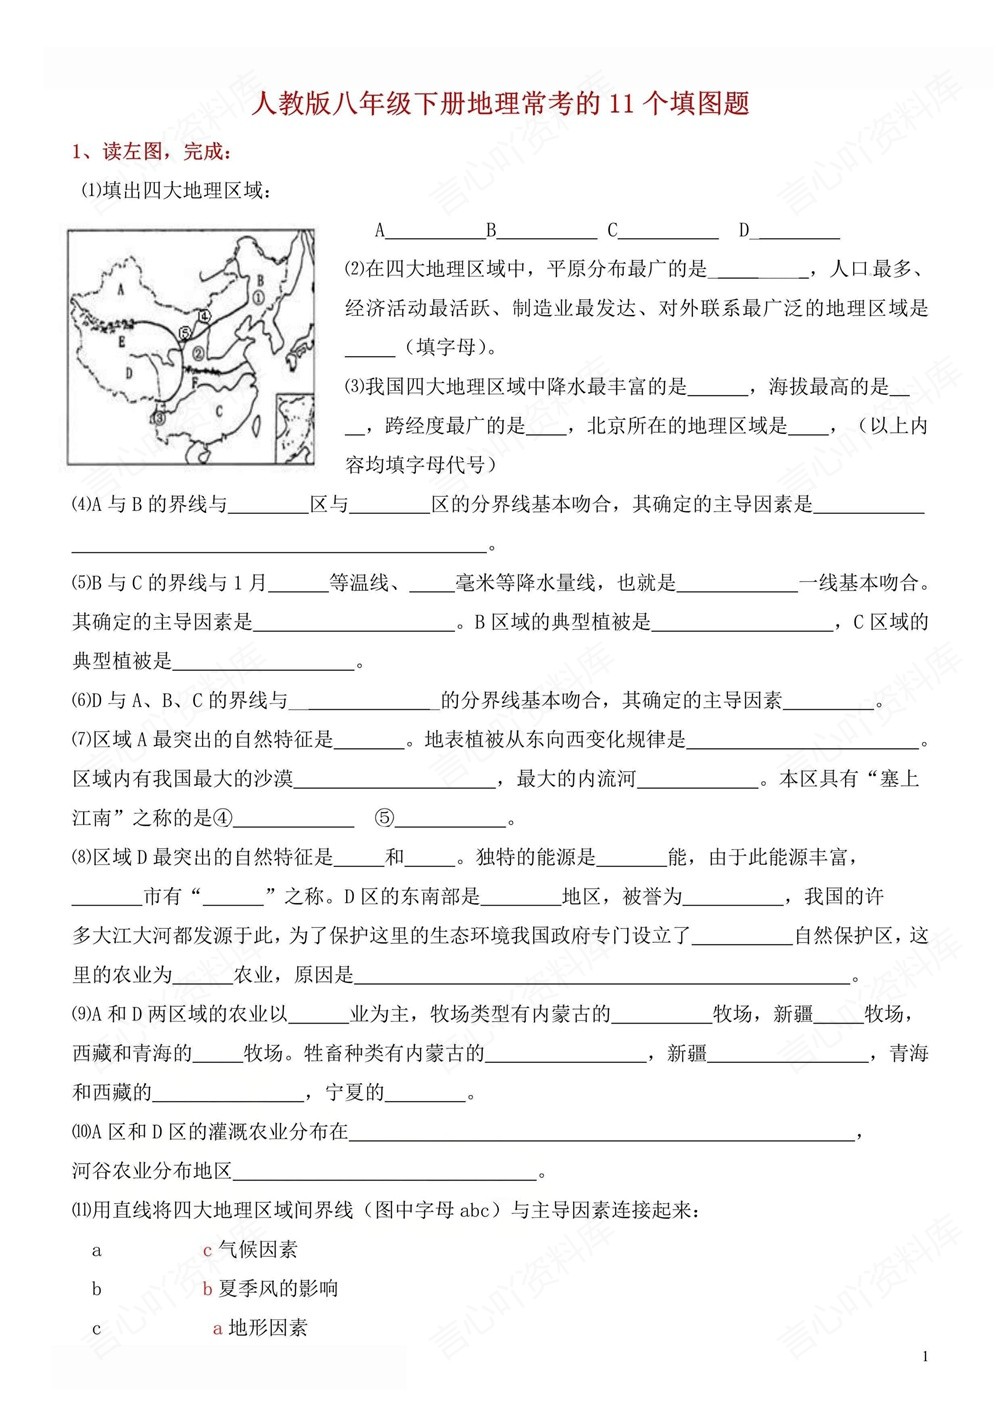 人教版八年级下册地理常考的 11 个填图题
1、读左图，完成：
⑴填出四大地理区域：
A__________B__________ C__________ D__________
⑵在四大地理区域中，平原分布最广的是__________，人口最多、
经济活动最活跃、制造业最发达、对外联系最广泛的地理区域是
_____（填字母）。
⑶我国四大地理区域中降水最丰富的是______，海拔最高的是__
__，跨经度最广的是____，北京所在的地理区域是____，（以上内
容均填字母代号）
A
B
①
④
⑤
E
②
D
F
C
③
⑷A 与 B 的界线与________区与________区的分界线基本吻合，其确定的主导因素是___________
_________________________________________。
⑸B 与 C 的界线与 1 月______等温线、_____毫米等降水量线，也就是____________一线基本吻合。
其确定的主导因素是____________________。B 区域的典型植被是__________________，C 区域的
典型植被是__________________。
⑹D 与 A、B、C 的界线与_______________的分界线基本吻合，其确定的主导因素_________。
⑺区域 A 最突出的自然特征是_______。地表植被从东向西变化规律是_______________________。
区域内有我国最大的沙漠____________________，最大的内流河____________。本区具有“塞上
江南”之称的是④____________ ⑤___________。
⑻区域 D 最突出的自然特征是_____和_____。独特的能源是_______能，由于此能源丰富，
_______市有“______”之称。D 区的东南部是________地区，被誉为__________，我国的许
多大江大河都发源于此，为了保护这里的生态环境我国政府专门设立了__________自然保护区，这
里的农业为______农业，原因是_________________________________________________。
⑼A 和 D 两区域的农业以______业为主，牧场类型有内蒙古的__________牧场，新疆_____牧场，
西藏和青海的_____牧场。牲畜种类有内蒙古的________________，新疆________________，青海
和西藏的_______________，宁夏的________。
⑽A 区和 D 区的灌溉农业分布在__________________________________________________，
河谷农业分布地区______________________________。
⑾用直线将四大地理区域间界线（图中字母 abc）与主导因素连接起来：
a c 气候因素
b b 夏季风的影响
c a 地形因素
1
言心吖资料库